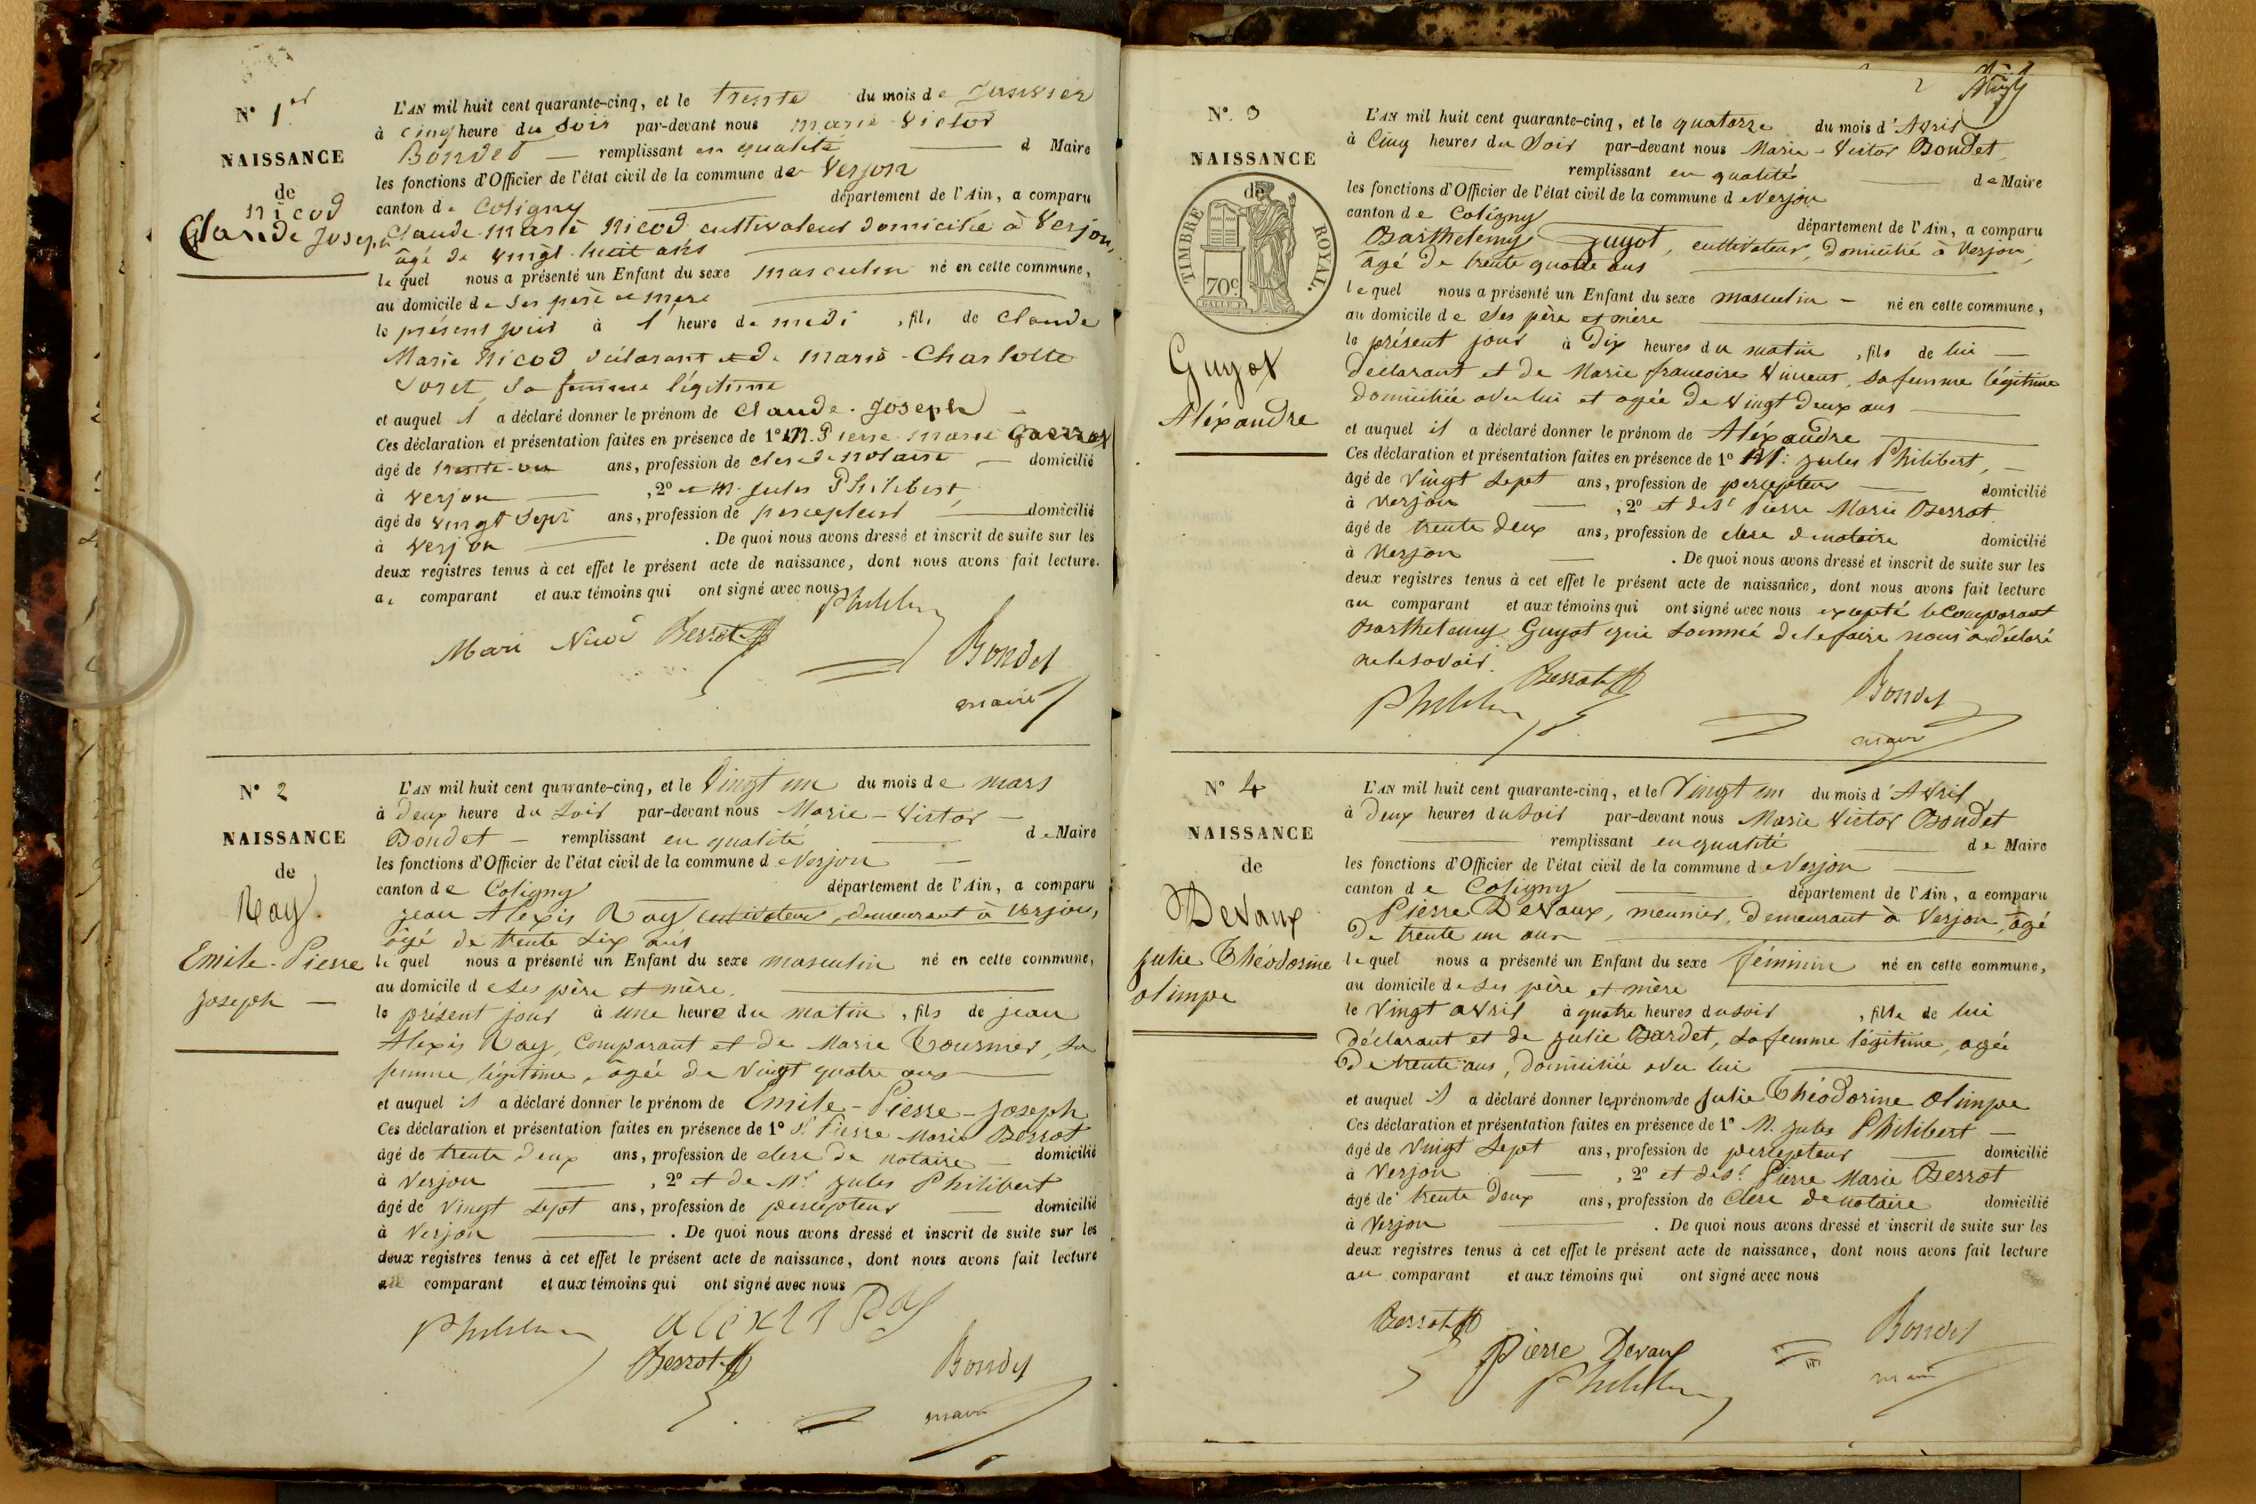 N° 1er
NAISSANCE
de
Nicod
Claude Joseph
L'AN mil huit cent quarante-cinq, et le trente du mois de Janvier
à cinq heure du Soir par-devant nous Marie-Victor
Bondet — remplissant en qualité — d Maire
les fonctions d'Officier de l'état civil de la commune de Verjon
canton de Coligny — département de l'Ain, a comparu
Claude-Marie Nicod cultivateur domicilié à Verjon,
âgé de vingt-huit ans
le quel nous a présenté un Enfant du sexe masculin né en cette commune,
au domicile de ses père et mère
le présent jour à 1 heure de midi, fils de Claude
Marie Nicod déclarant et de Marie-Charlotte
sa femme légitime
et auquel il a déclaré donner le prénom de Claude-Joseph —
Ces déclaration et présentation faites en présence de 1° M. Pierre-Marie
âgé de trente-un ans, profession de clerc de notaire — domicilié
à Verjon — , 2° et M. Jules Philibert,
âgé de vingt sept ans, profession de percepteur — domicilié
à Verjon — . De quoi nous avons dressé et inscrit de suite sur les
deux registres tenus à cet effet le présent acte de naissance, dont nous avons fait lecture.
au comparant et aux témoins qui ont signé avec nous
Philibert
Mari Nicod Berrot
Bondet
maire
N° 2
NAISSANCE
de
Ray.
Emile-Pierre
Joseph —
L'AN mil huit cent quarante-cinq, et le Vingt un du mois de mars
à deux heure du Soir par-devant nous Marie-Victor —
Bondet — remplissant en qualité — de Maire
les fonctions d'Officier de l'état civil de la commune de Verjon —
canton de Coligny — département de l'Ain, a comparu
Jean Aléxis Ray cultivateur, demeurant à Verjon,
âgé de trente six ans
le quel nous a présenté un Enfant du sexe masculin né en cette commune,
au domicile de ses père et mère.
le présent jour à une heure du matin, fils de jean
Aléxis Ray, Comparant et de Marie Tournier, sa
femme légitime, âgée de vingt quatre ans —
et auquel il a déclaré donner le prénom de Emile-Pierre-Joseph
Ces déclaration et présentation faites en présence de 1° Sr Pierre Marie Berrot
âgé de trente deux ans, profession de clerc de notaire — domicilié
à Verjon — , 2° et de Mr Jules Philibert
âgé de Vingt sept ans, profession de percepteur — domicilié
à Verjon — . De quoi nous avons dressé et inscrit de suite sur les
deux registres tenus à cet effet le présent acte de naissance, dont nous avons fait lecture
au comparant et aux témoins qui ont signé avec nous
Philibert alexis Ray
Berrot Bondet
maire
N° 3
NAISSANCE
de
TIMBRE ROYAL.
70c.
Guyot
Aléxandre
L'AN mil huit cent quarante-cinq, et le quatorze du mois d'Avril
à Cinq heures du Soir par-devant nous Marie-Victor Bondet,
— remplissant en qualité — de Maire
les fonctions d'Officier de l'état civil de la commune de Verjon
canton de Coligny — département de l'Ain, a comparu
Barthelemy Guyot, cultivateur, domicilié à Verjon,
âgé de trente quatre ans
le quel nous a présenté un Enfant du sexe masculin — né en cette commune,
au domicile de ses père et mère
le présent jour à dix heures du matin, fils de lui —
déclarant et de Marie francoise Vincent, sa femme légitime
domiciliée avec lui et agée de Vingt deux ans —
et auquel il a déclaré donner le prénom de Aléxandre —
Ces déclaration et présentation faites en présence de 1° Mr: Jules Philibert, —
âgé de Vingt Sept ans, profession de percepteur — domicilié
à Verjon — , 2° et de Sr Pierre Marie Berrot
âgé de trente deux ans, profession de clerc de notaire domicilié
à Verjon — . De quoi nous avons dressé et inscrit de suite sur les
deux registres tenus à cet effet le présent acte de naissance, dont nous avons fait lecture
au comparant et aux témoins qui ont signé avec nous excepté le Comparant
Barthelemy Guyot qui sommé de le faire nous a déclaré
ne le savoir.
Berrot Bondet
Philibert
maire
N° 4
NAISSANCE
de
Devaux
Julie Théodorine
olimpe
L'AN mil huit cent quarante-cinq, et le Vingt un du mois d'Avril
à deux heures du Soir par-devant nous Marie Victor Bondet
— remplissant en qualité — de Maire
les fonctions d'Officier de l'état civil de la commune de Verjon —
canton de Coligny — département de l'Ain, a comparu
Pierre Devaux, meunier, demeurant à Verjon, âgé
de trente un ans
le quel nous a présenté un Enfant du sexe féminin né en cette commune,
au domicile de ses père et mère
le Vingt avril à quatre heures du soir, fille de lui
déclarant et de Julie Bardet, sa femme légitime, agée
de trente ans, domiciliée avec lui —
et auquel il a déclaré donner les prénoms de Julie Théodorine Olimpe
Ces déclaration et présentation faites en présence de 1° M. Jules Philibert —
âgé de Vingt Sept ans, profession de percepteur — domicilié
à Verjon — , 2° et de Sr Pierre Marie Berrot
âgé de trente deux ans, profession de Clerc de notaire domicilié
à Verjon — . De quoi nous avons dressé et inscrit de suite sur les
deux registres tenus à cet effet le présent acte de naissance, dont nous avons fait lecture
au comparant et aux témoins qui ont signé avec nous
Berrot Bondet
Pierre Devaux
maire
Philibert